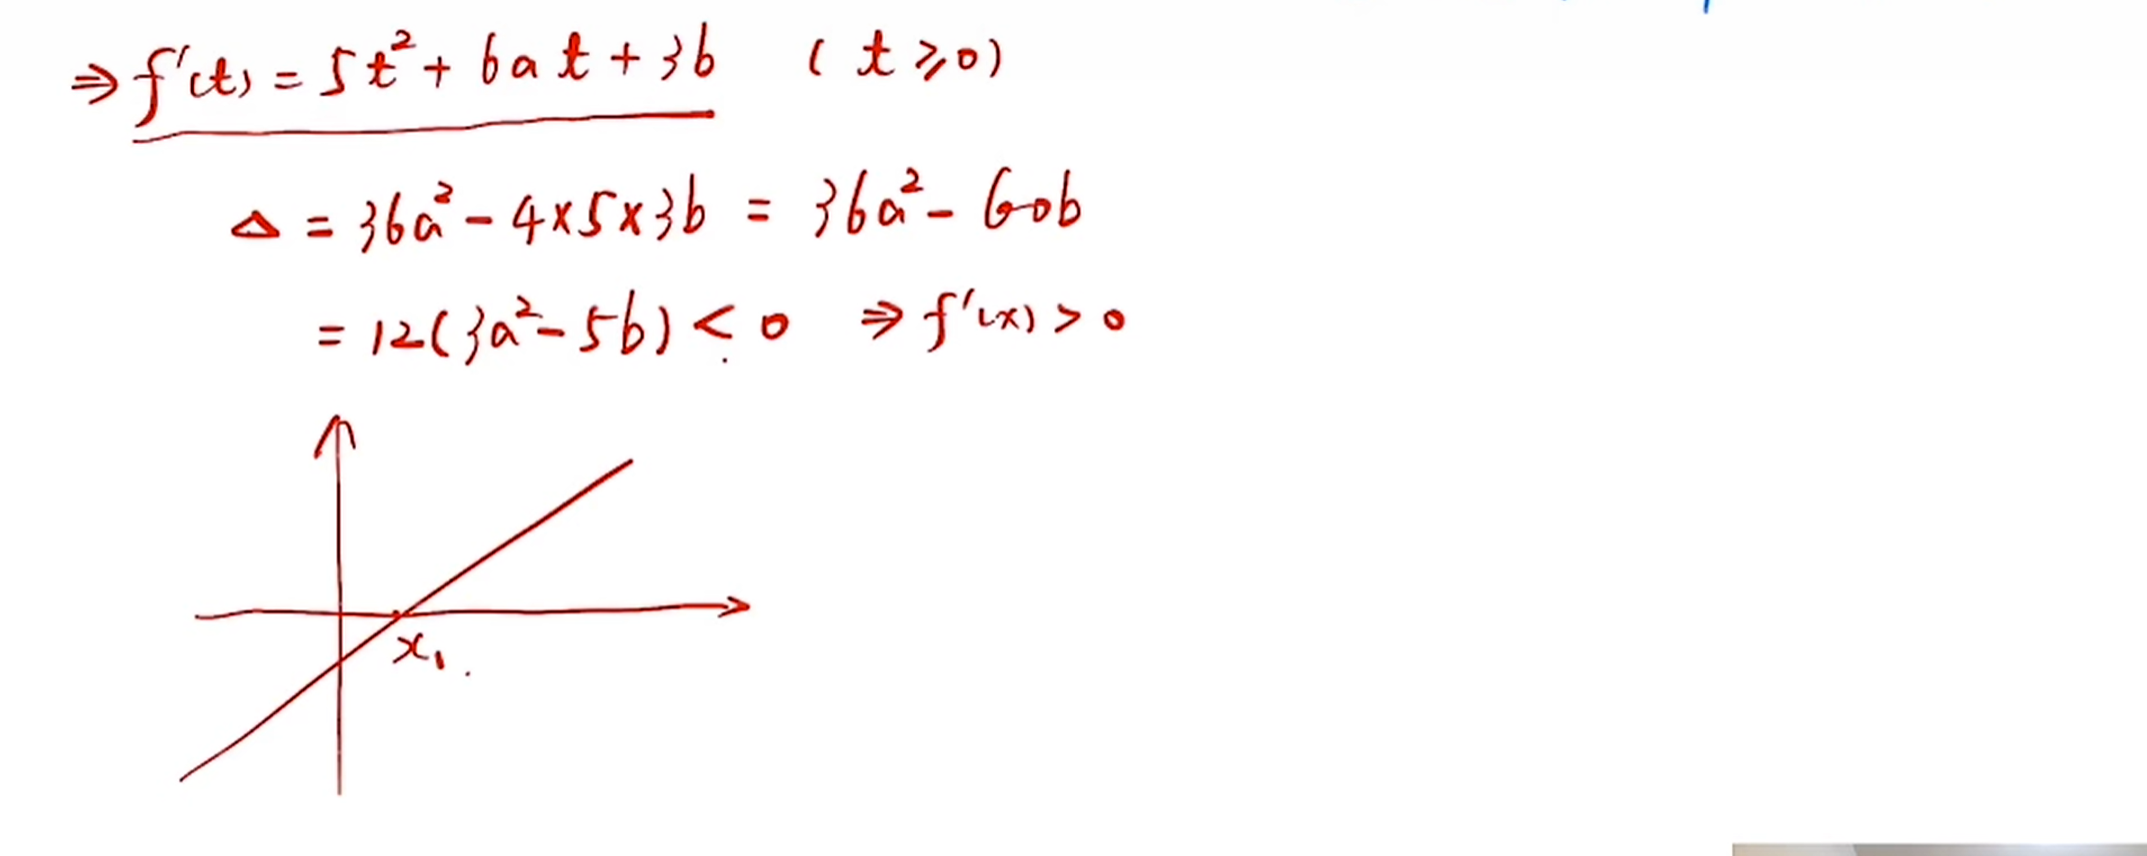 ⇒ f'(t) = 5t² + 6at + 3b (t ≥ 0)
Δ = 36a² - 4×5×3b = 36a² - 60b
= 12(3a² - 5b) < 0 ⇒ f'(x) > 0
x₁